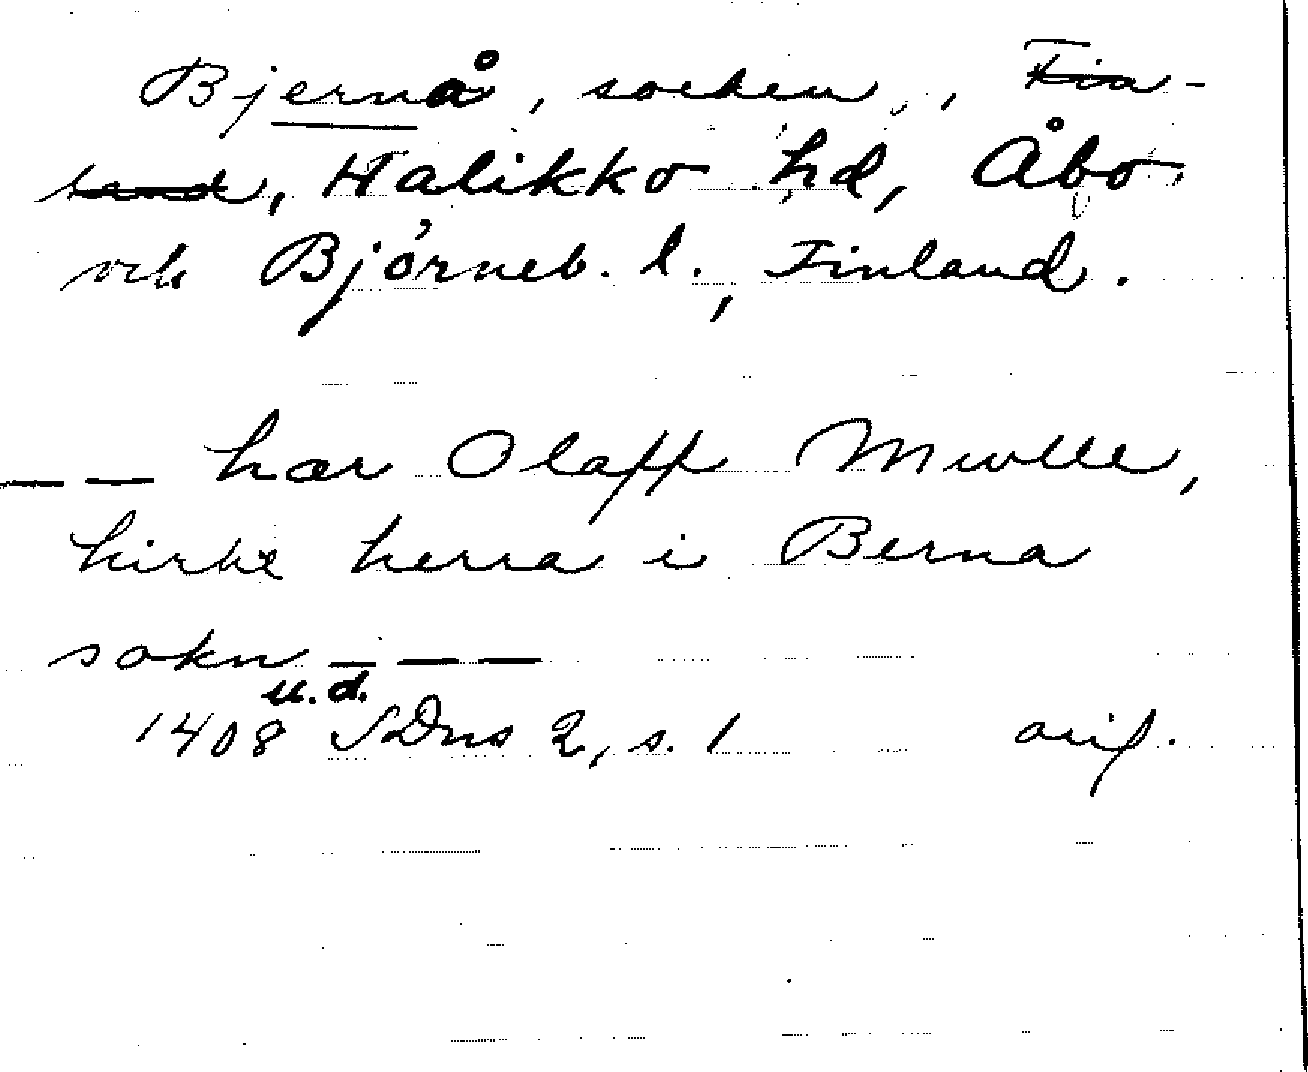 Bjernå, socken, Fin-
land, Halikko hd, Åbo
och Björneb. l., Finland.
— — hær Olaff Mwlle,
kirke herra i Berna
sokn — — —
u.d.
1408 SDns 2, s. 1 orig.